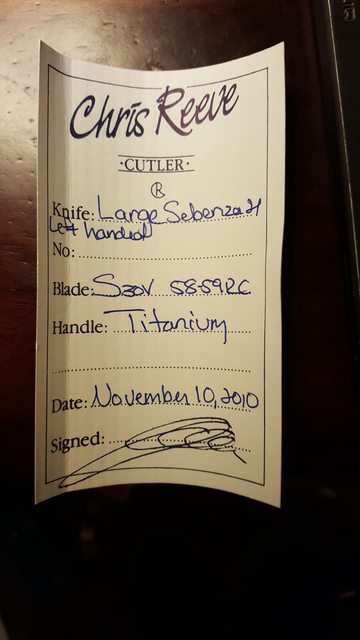 Chris Reeve
·CUTLER·
®
Knife: Large Sebenza 21
Left handed
No:
Blade: S30V 58-59RC
Handle: Titanium
Date: November 10, 2010
Signed: